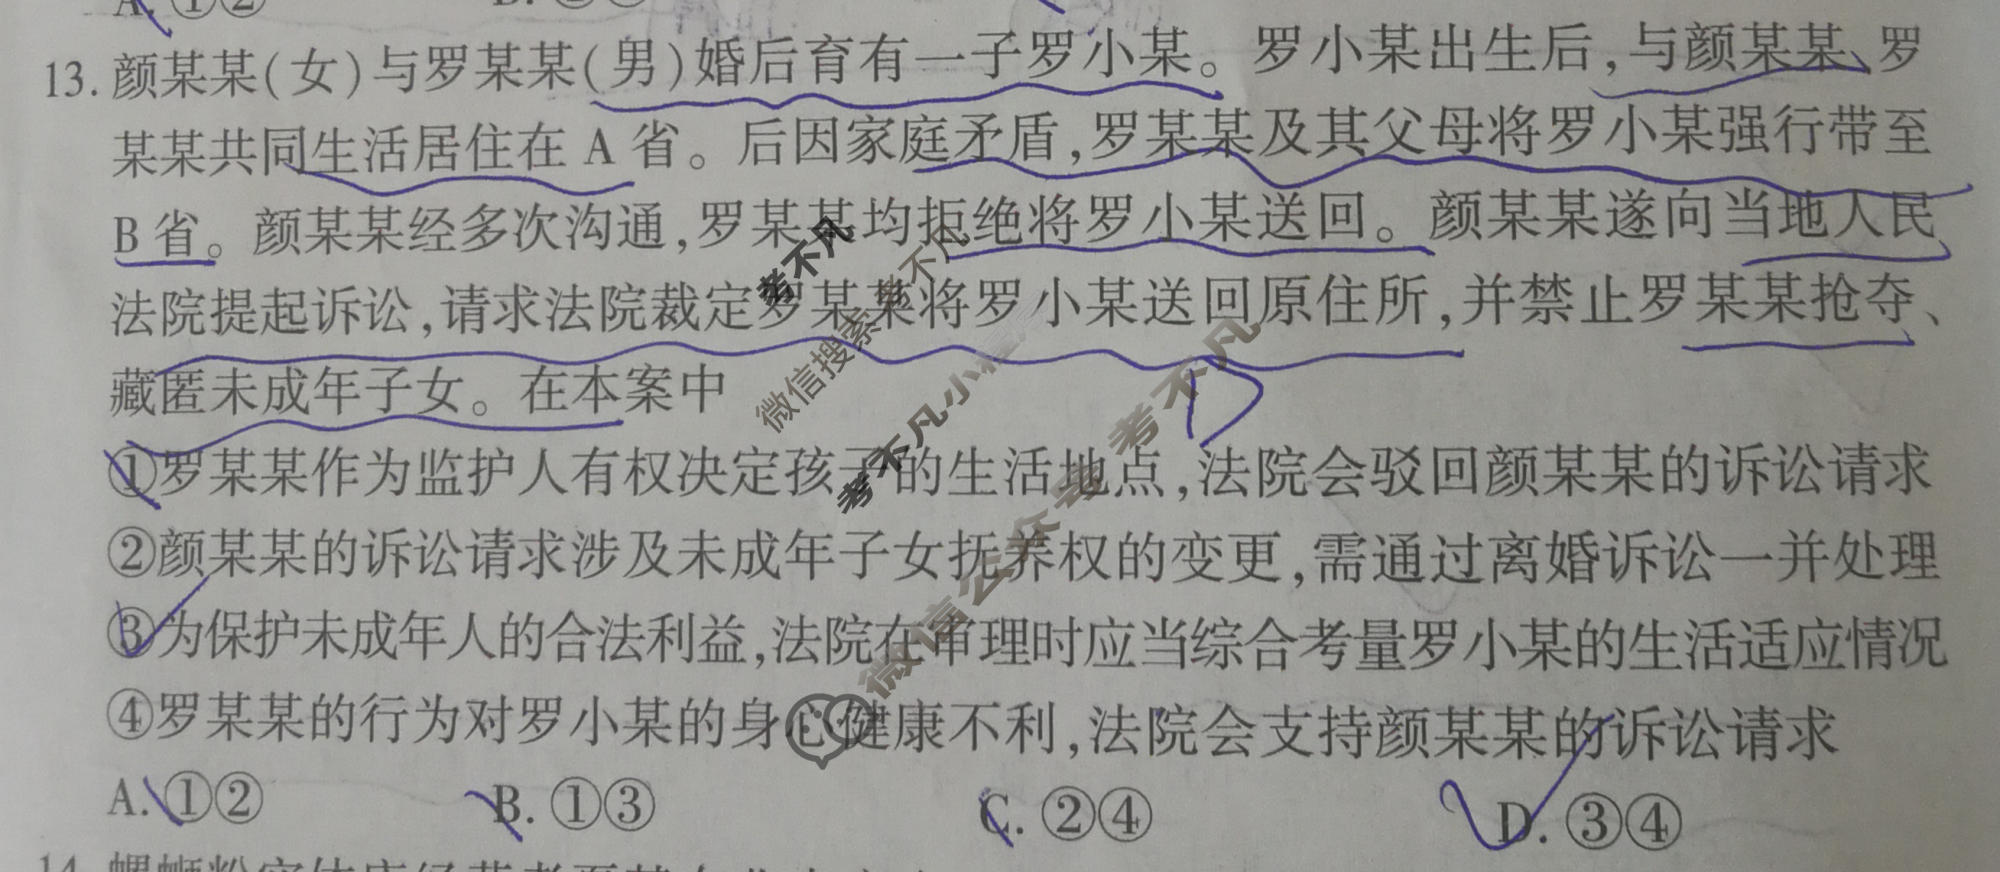 A. ①②
13. 颜某某(女)与罗某某(男)婚后育有一子罗小某。罗小某出生后,与颜某某、罗
某某共同生活居住在 A 省。后因家庭矛盾,罗某某及其父母将罗小某强行带至
B 省。颜某某经多次沟通,罗某某均拒绝将罗小某送回。颜某某遂向当地人民
法院提起诉讼,请求法院裁定罗某某将罗小某送回原住所,并禁止罗某某抢夺、
藏匿未成年子女。在本案中
①罗某某作为监护人有权决定孩子的生活地点,法院会驳回颜某某的诉讼请求
②颜某某的诉讼请求涉及未成年子女抚养权的变更,需通过离婚诉讼一并处理
③为保护未成年人的合法利益,法院在审理时应当综合考量罗小某的生活适应情况
④罗某某的行为对罗小某的身心健康不利,法院会支持颜某某的诉讼请求
A. ①② B. ①③ C. ②④ D. ③④
考不凡
考不凡
微信搜索
考不凡小程
微信公众号 考不凡
D